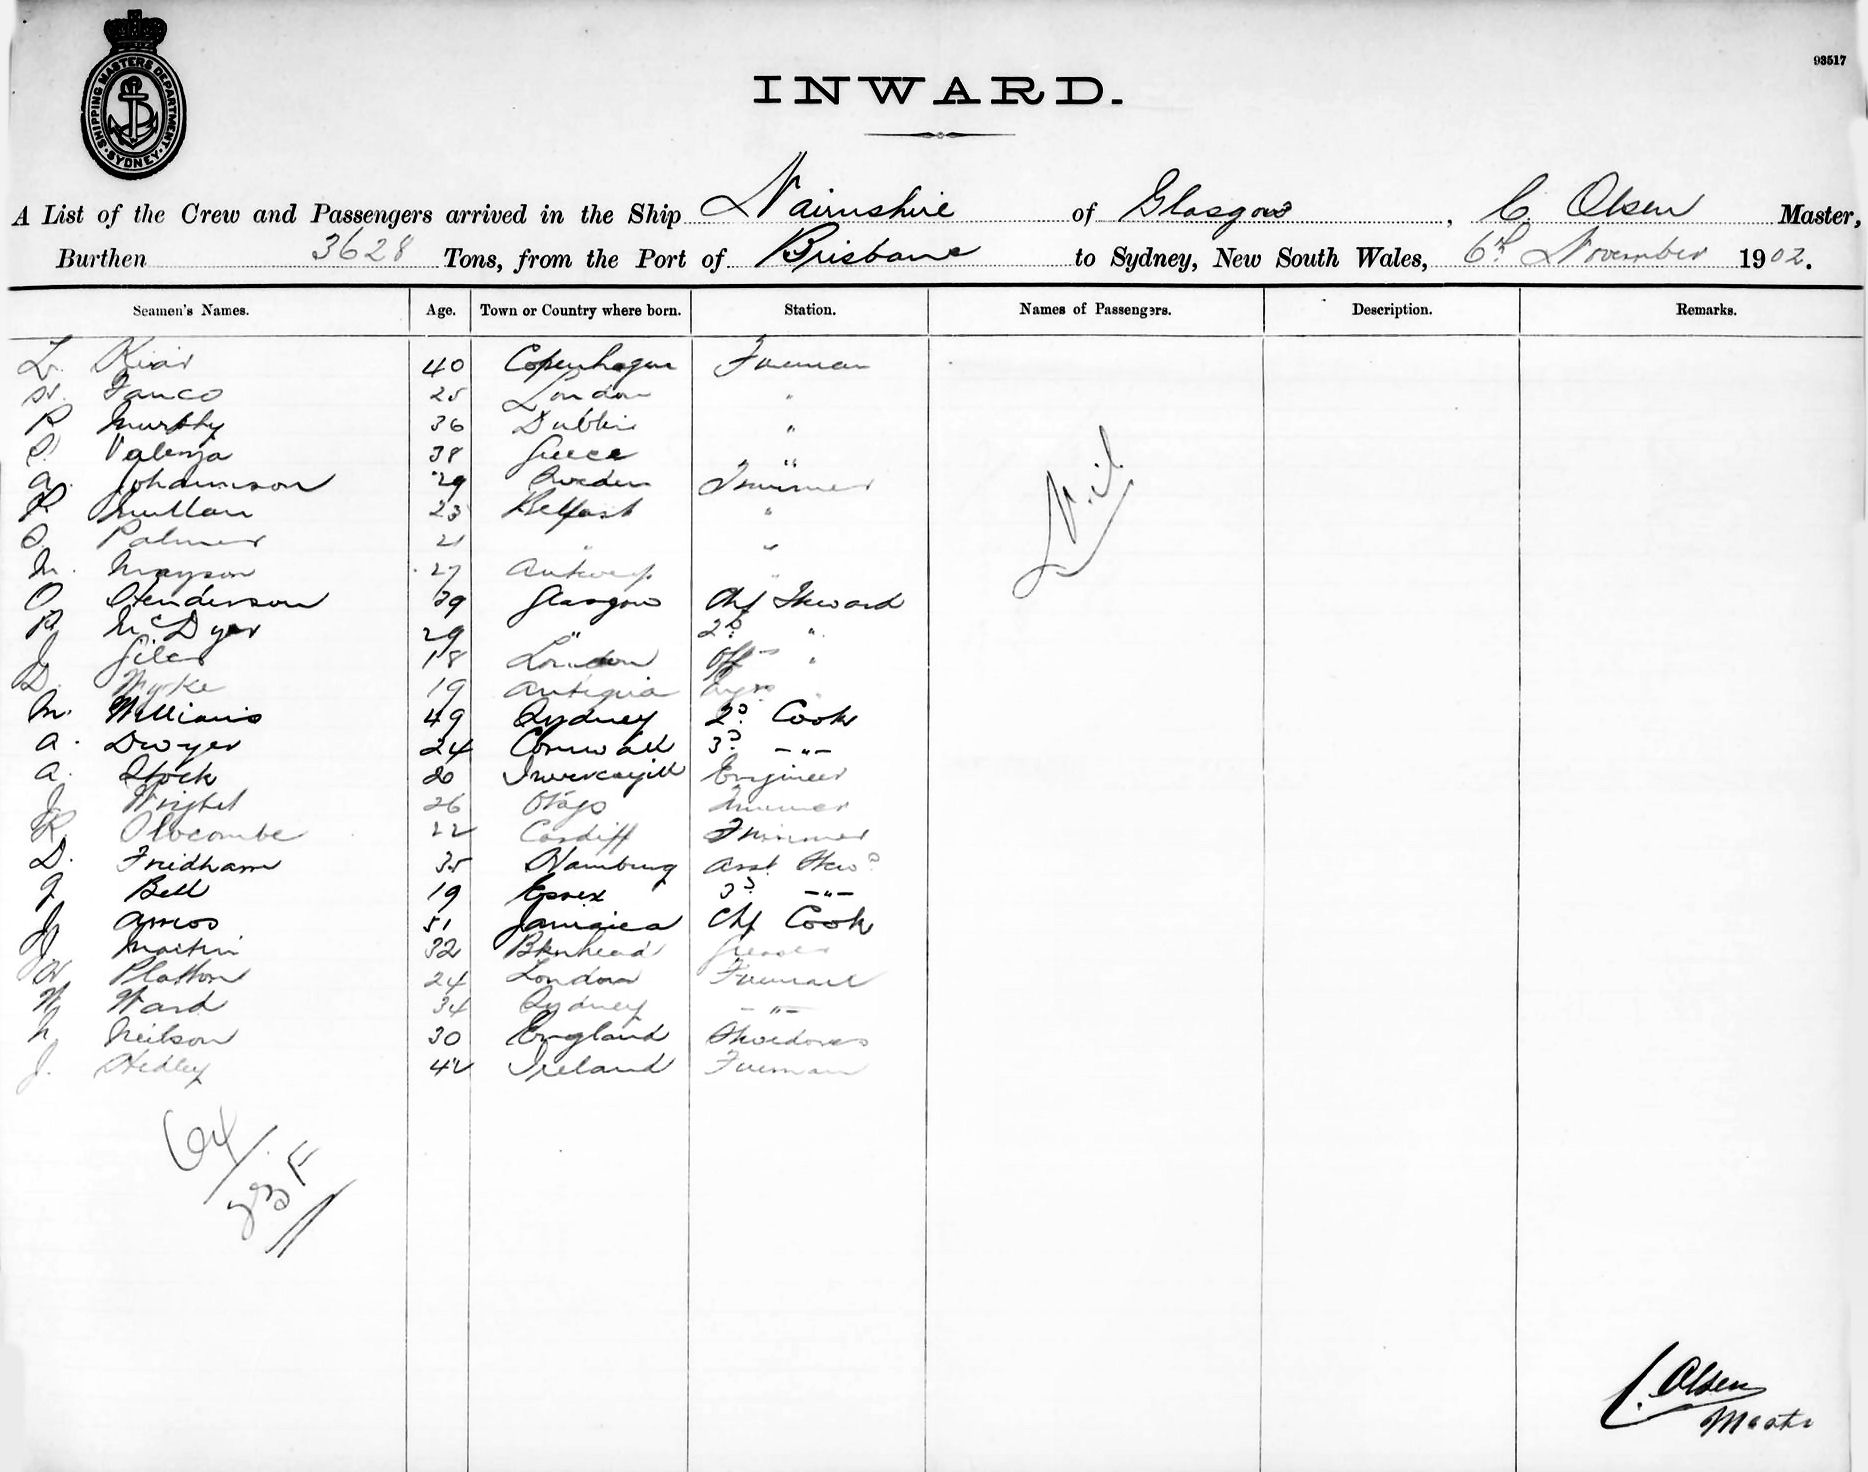 SHIPPING MASTERS DEPARTMENT · SYDNEY ·
93517
INWARD.
A List of the Crew and Passengers arrived in the Ship Nairnshire of Glasgow, C. Olsen Master,
Burthen 3628 Tons, from the Port of Brisbane to Sydney, New South Wales, 6th November 1902.
Seamen's Names. Age. Town or Country where born. Station. Names of Passengers. Description. Remarks.
L. Kiar 40 Copenhagen Fireman
25 London "
P Murphy 36 Dublin "
38 Greece "
A. Johannson 29 Sweden Trimmer
P Mullan 23 Belfast "
S. Palmer 21 " "
M. Mayson 27 Antwerp "
O. Henderson 39 Glasgow Chf Steward
P. McDyer 29 " 2d "
J Giles 18 London Offs "
D. 19 Antigua "
M. Williams 49 Sydney 2d Cook
A. Dwyer 24 Cornwall 3d -"-
A. Stock 20 Invercargill Engineer
J Wright 26 Otago Trimmer
R. 22 Cardiff Trimmer
D. Fridham 35 Hamburg Asst Stewd
G Bell 19 Essex 3d -"-
J Amos 51 Jamaica Chf Cook
J Martin 32 Bknhead Greaser
W Platton 24 London Fireman
W Ward 34 Sydney -"-
N. Neilson 30 England
J. Hedley 42 Ireland Fireman
Nil
64/
33F
C. Olsen
Master